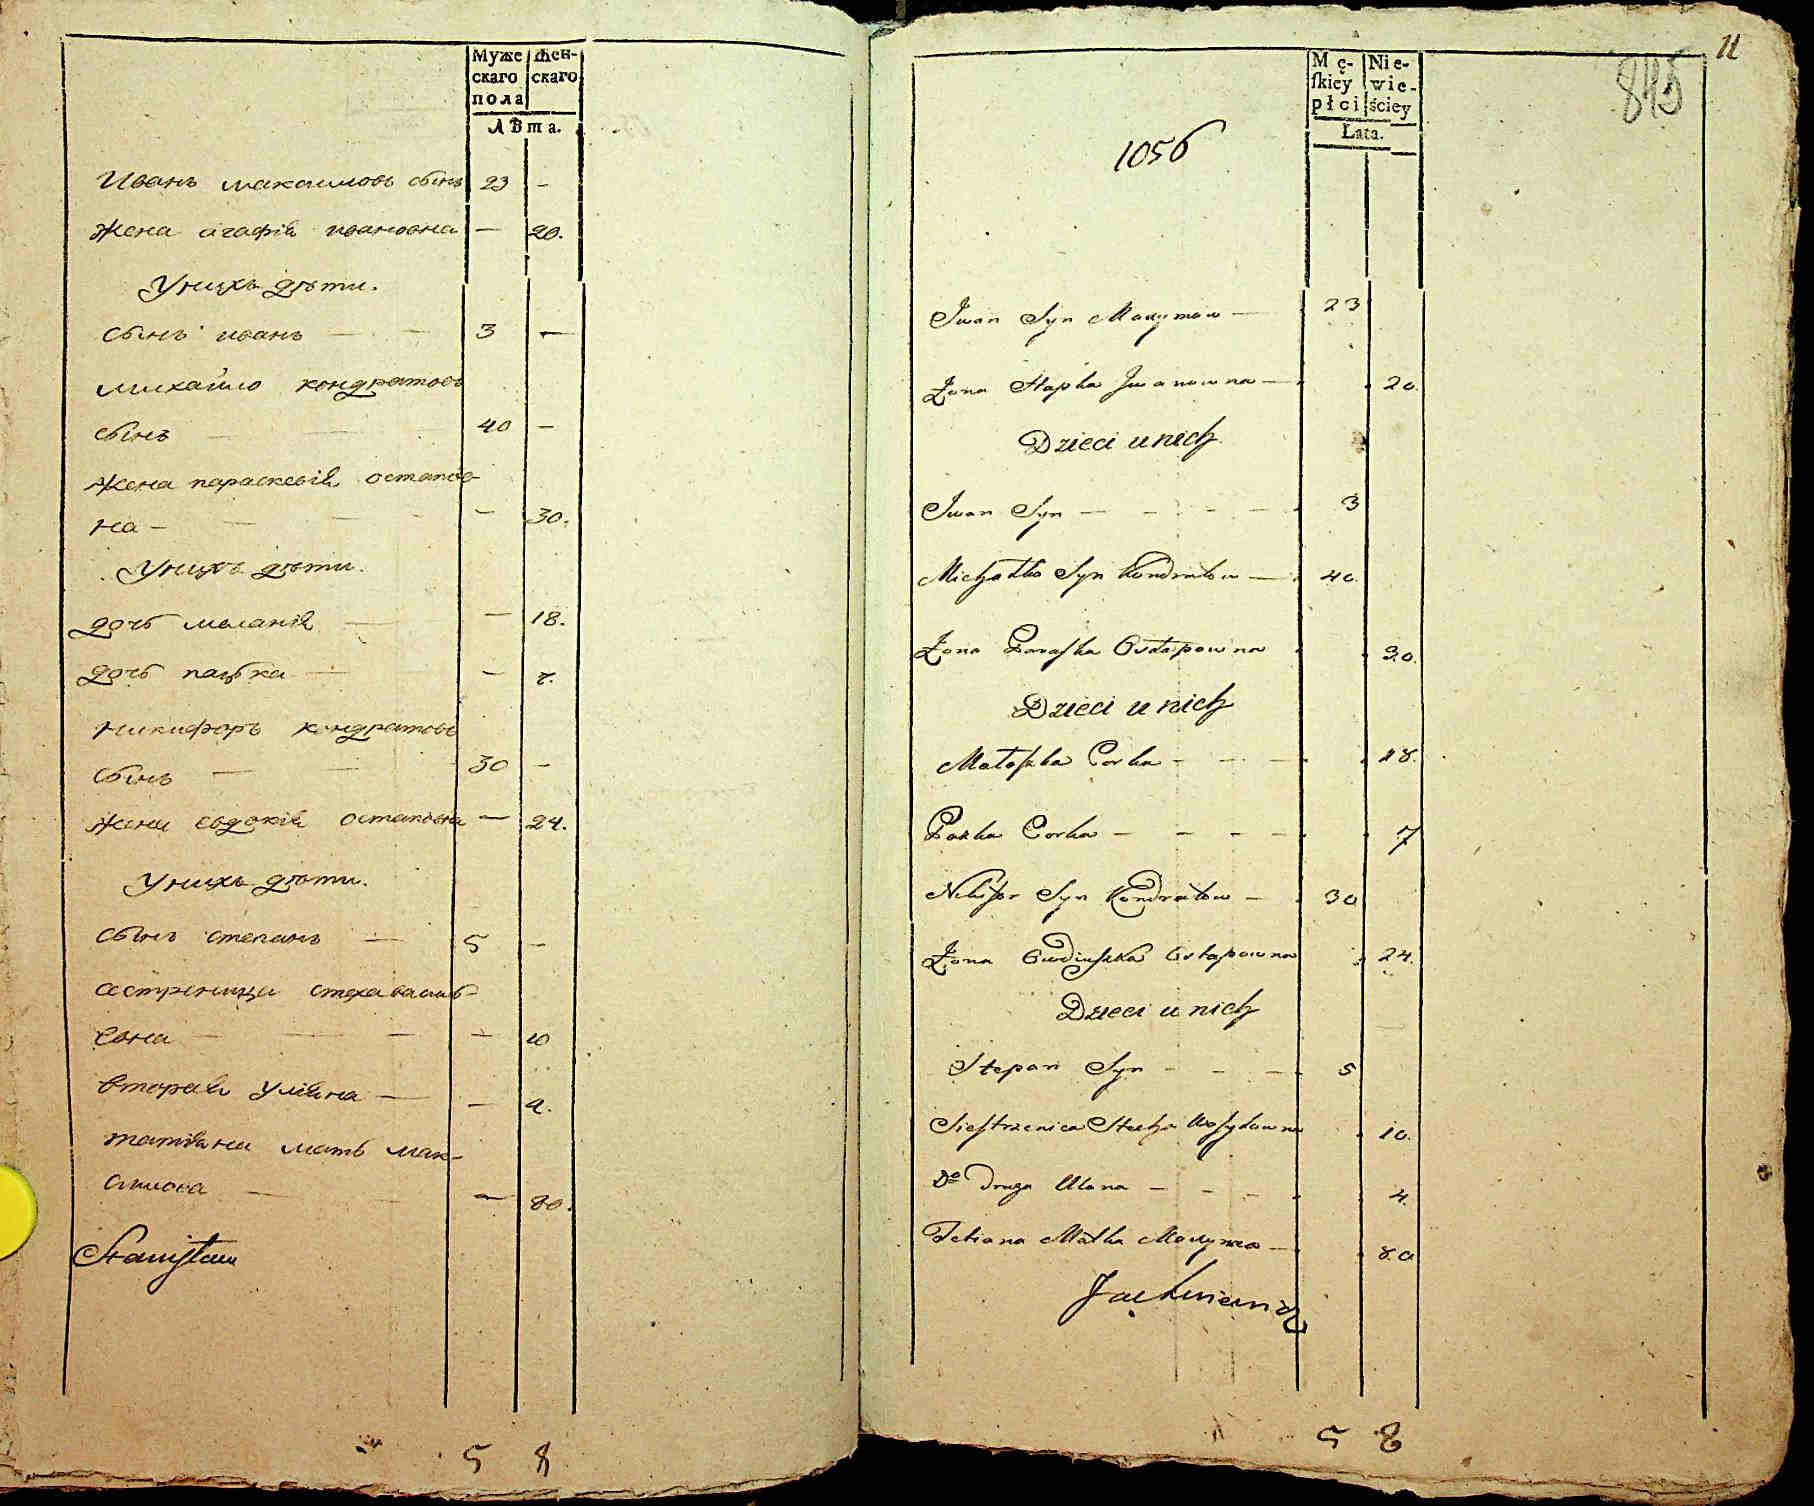 Муже Жен-
скаго скаго
пола
Лѣта.
Иванъ максимовъ сынъ 23 -
жена агафія ивановна - 20.
У нихъ дѣти.
сынъ иванъ - - 3 -
михайло кондратовъ
сынъ - - 40 -
жена параскевія остапов-
на - - - - - 30.
У нихъ дѣти.
дочь маланія - - 18.
дочь пазька - - 7.
никифоръ кондратовъ
сынъ - - 30 -
жена евдокія остаповна - 24.
У нихъ дѣти.
сынъ степанъ - 5 -
сестреница стеха василь-
евна - - - - 10
вторая уляна - - 4.
татіяна мать мак-
симова - - - 80.
Stanisław
5 8
11
845
Mę- Nie-
skiey wie-
płci ściey
Lata.
1056
Iwan Syn Maxymow - 23
Żona Hapka Iwanowna - 20.
Dzieci u nich
Iwan Syn - - - - - 3
Michałko Syn Kondratow - 40.
Żona Paraska Ostapowna 30.
Dzieci u nich
Małaszka Corka - - - 18.
Pazka Corka - - - - 7
Nikifor Syn Kondratow - 30
Żona Owdiuszka Ostapowna 24.
Dzieci u nich
Stepan Syn - - - 5
Siestrzenica Stecha Wasylowna 10.
Do Druga Ulana - - - - 4.
Tetiana Matka Maxyma - 80
Jackiewicz
5 8